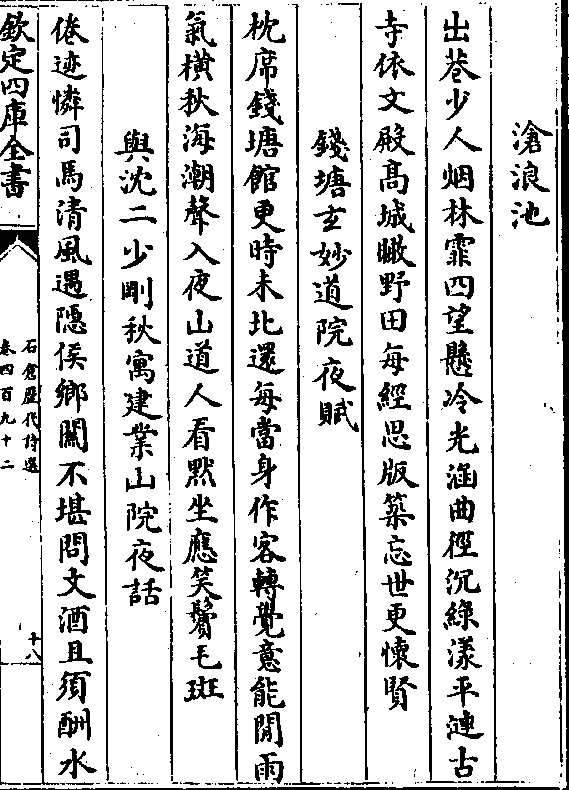 滄浪池
出巷少人烟林霏四望懸冷光涵曲徑沉綠漾平漣古
寺依文殿高城瞰野田每經思版築忘世更懷賢
錢塘玄妙道院夜賦
枕席錢塘館更時未北還每當身作客轉覺意能閒雨
氣橫秋海潮聲入夜山道人看默坐應笑鬢毛斑
與沈二少剛秋寓建業山院夜話
倦迹憐司馬清風遇隱侯鄉關不堪問文酒且須酬水
欽定四庫全書
石倉歷代詩選
卷四百九十二
十八